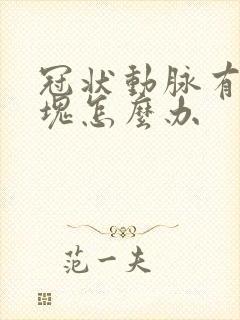 冠状動脉有
塊怎麼办
范一夫